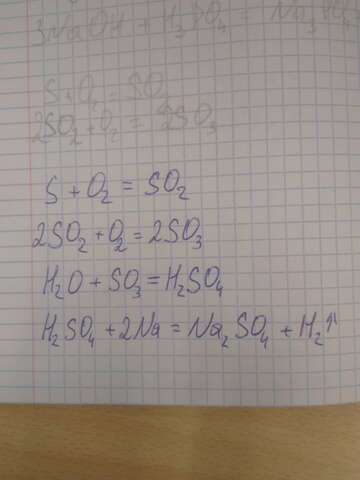 3NaOH + H₃PO₄ = Na₃
S + O₂ = SO₂
2SO₂ + O₂ = 2SO₃
S + O₂ = SO₂
2SO₂ + O₂ = 2SO₃
H₂O + SO₃ = H₂SO₄
H₂SO₄ + 2Na = Na₂SO₄ + H₂↑